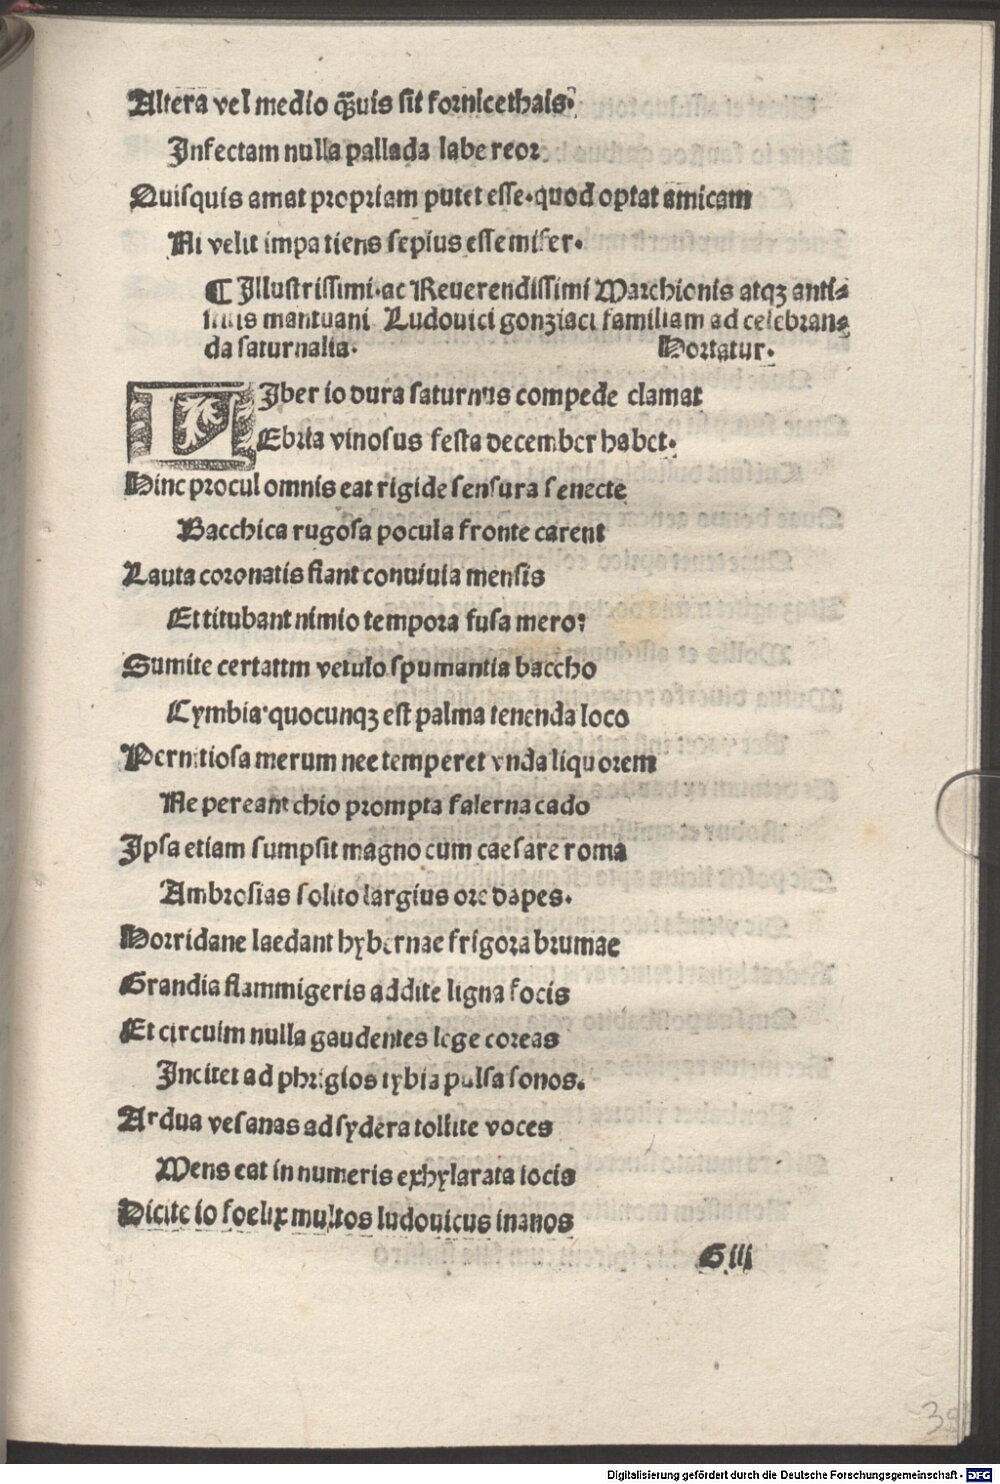 Altera vel medio q̃uis sit fornicethais:
Infectam nulla pallada labe reor
Quisquis amat propriam putet esse·quod optat amicam
Ni velit impatiens sepius esse miser·
¶ Illustrissimi·ac Reuerendissimi Marchionis atqꝫ anti-
stitis mantuani Ludouici gonziaci familiam ad celebran-
da saturnalia· Hortatur·
LIber io dura saturnus compede clamat
Ebria vinosus festa december habet·
Hinc procul omnis eat rigide sensura senecte
Bacchica rugosa pocula fronte carent
Lauta coronatis fiant conuiuia mensis
Et titubant nimio tempora fusa mero:
Sumite certattm vetulo spumantia baccho
Cymbia·quocunqꝫ est palma tenenda loco
Pernitiosa merum nec temperet vnda liquorem
Ne pereant chio prompta falerna cado
Ipsa etiam sumpsit magno cum caesare roma
Ambrosias solito largius ore dapes·
Horridane laedant hybernae frigora brumae
Grandia flammigeris addite ligna focis
Et circuim nulla gaudentes lege coreas
Incitet ad phrigios tybia pulsa sonos.
Ardua vesanas ad sydera tollite voces
Mens eat in numeris exhylarata iocis
Dicite io foelix multos ludouicus inanos
G iii
39
Digitalisierung gefördert durch die Deutsche Forschungsgemeinschaft - DFG